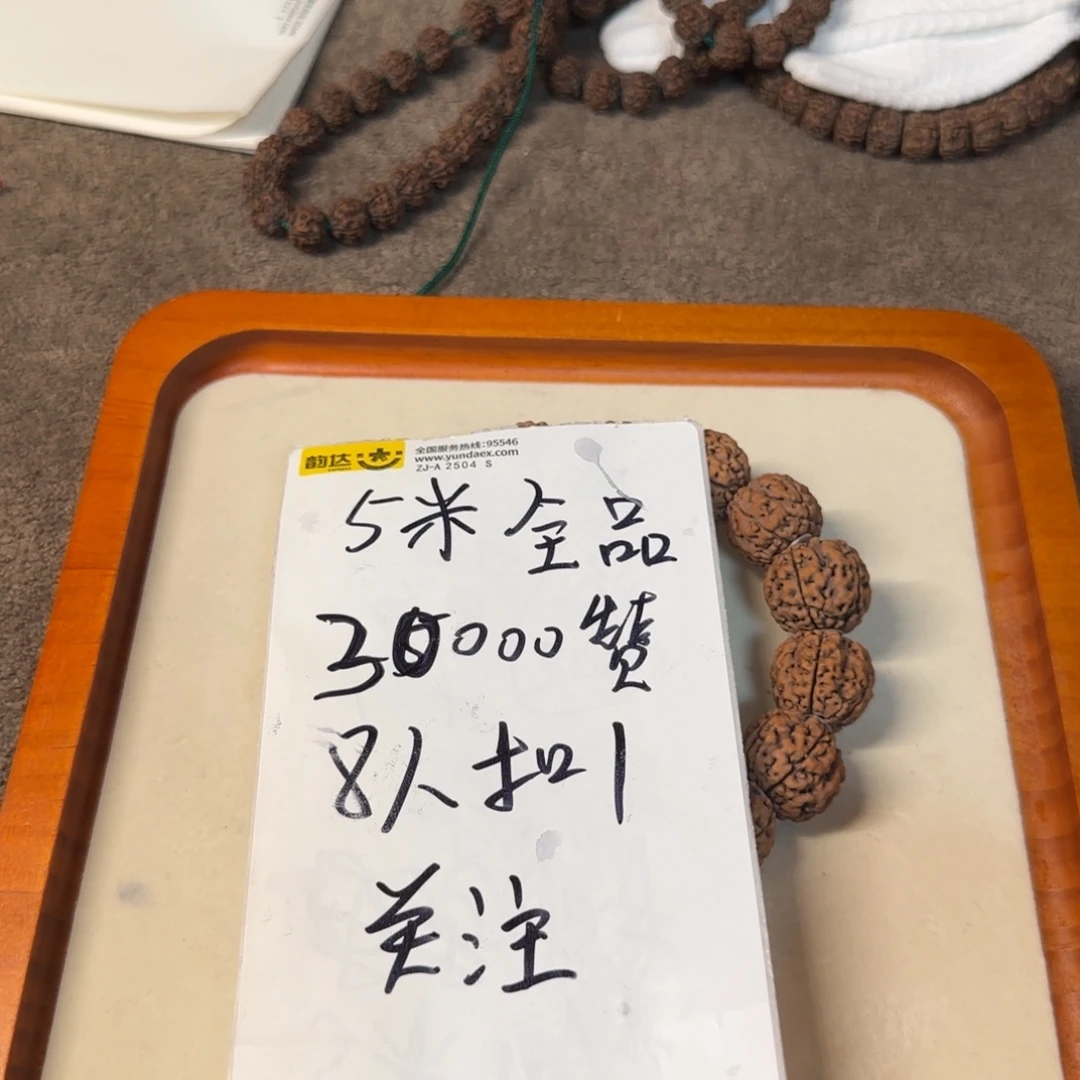 韵达
全国服务热线:95546
www.yundaex.com
ZJ-A 2504 S
5米 全品
30000赞
8人扣1
关注